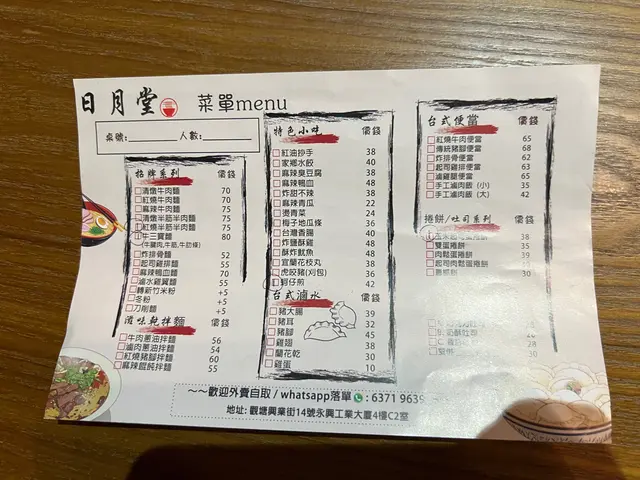 日月堂 菜單menu
桌號:________ 人數:________
招牌系列 價錢
清燉牛肉麵 70
紅燒牛肉麵 70
麻辣牛肉麵 75
清燉半筋半肉麵 75
紅燒半筋半肉麵 75
牛三寶麵 80
(牛腱肉,牛筋,牛肋條)
炸排骨麵 52
起司雞排麵 55
麻辣鴨血麵 70
滷水雞翼麵 55
轉新竹米粉 +5
冬粉 +5
刀削麵 +5
滷味乾拌麵 價錢
牛肉蔥油拌麵 56
滷肉蔥油拌麵 54
紅燒豬腳拌麵 60
麻辣餛飩拌麵 55
特色小吃 價錢
紅油抄手 38
家鄉水餃 40
麻辣臭豆腐 38
麻辣鴨血 48
炸甜不辣 38
麻辣青瓜 22
燙青菜 24
梅子地瓜條 36
台灣香腸 40
炸鹽酥雞 48
酥炸魷魚 48
宜蘭花枝丸 38
虎咬豬(刈包) 36
蚵仔煎 42
台式滷水 價錢
豬大腸 39
豬耳 32
豬腳 45
雞翅 38
蘭花乾 30
雞蛋 10
台式便當 價錢
紅燒牛肉便當 65
傳統豬腳便當 68
炸排骨便當 62
起司雞排便當 63
滷雞腿便當 65
手工滷肉飯 (小) 35
手工滷肉飯 (大) 42
捲餅/吐司系列 價錢
38
雙蛋捲餅 35
肉鬆蛋捲餅 39
起司肉鬆蛋捲餅
30
30
~~歡迎外賣自取 / whatsapp落單 : 6371 9639
地址: 觀塘興業街14號永興工業大廈4樓C2室